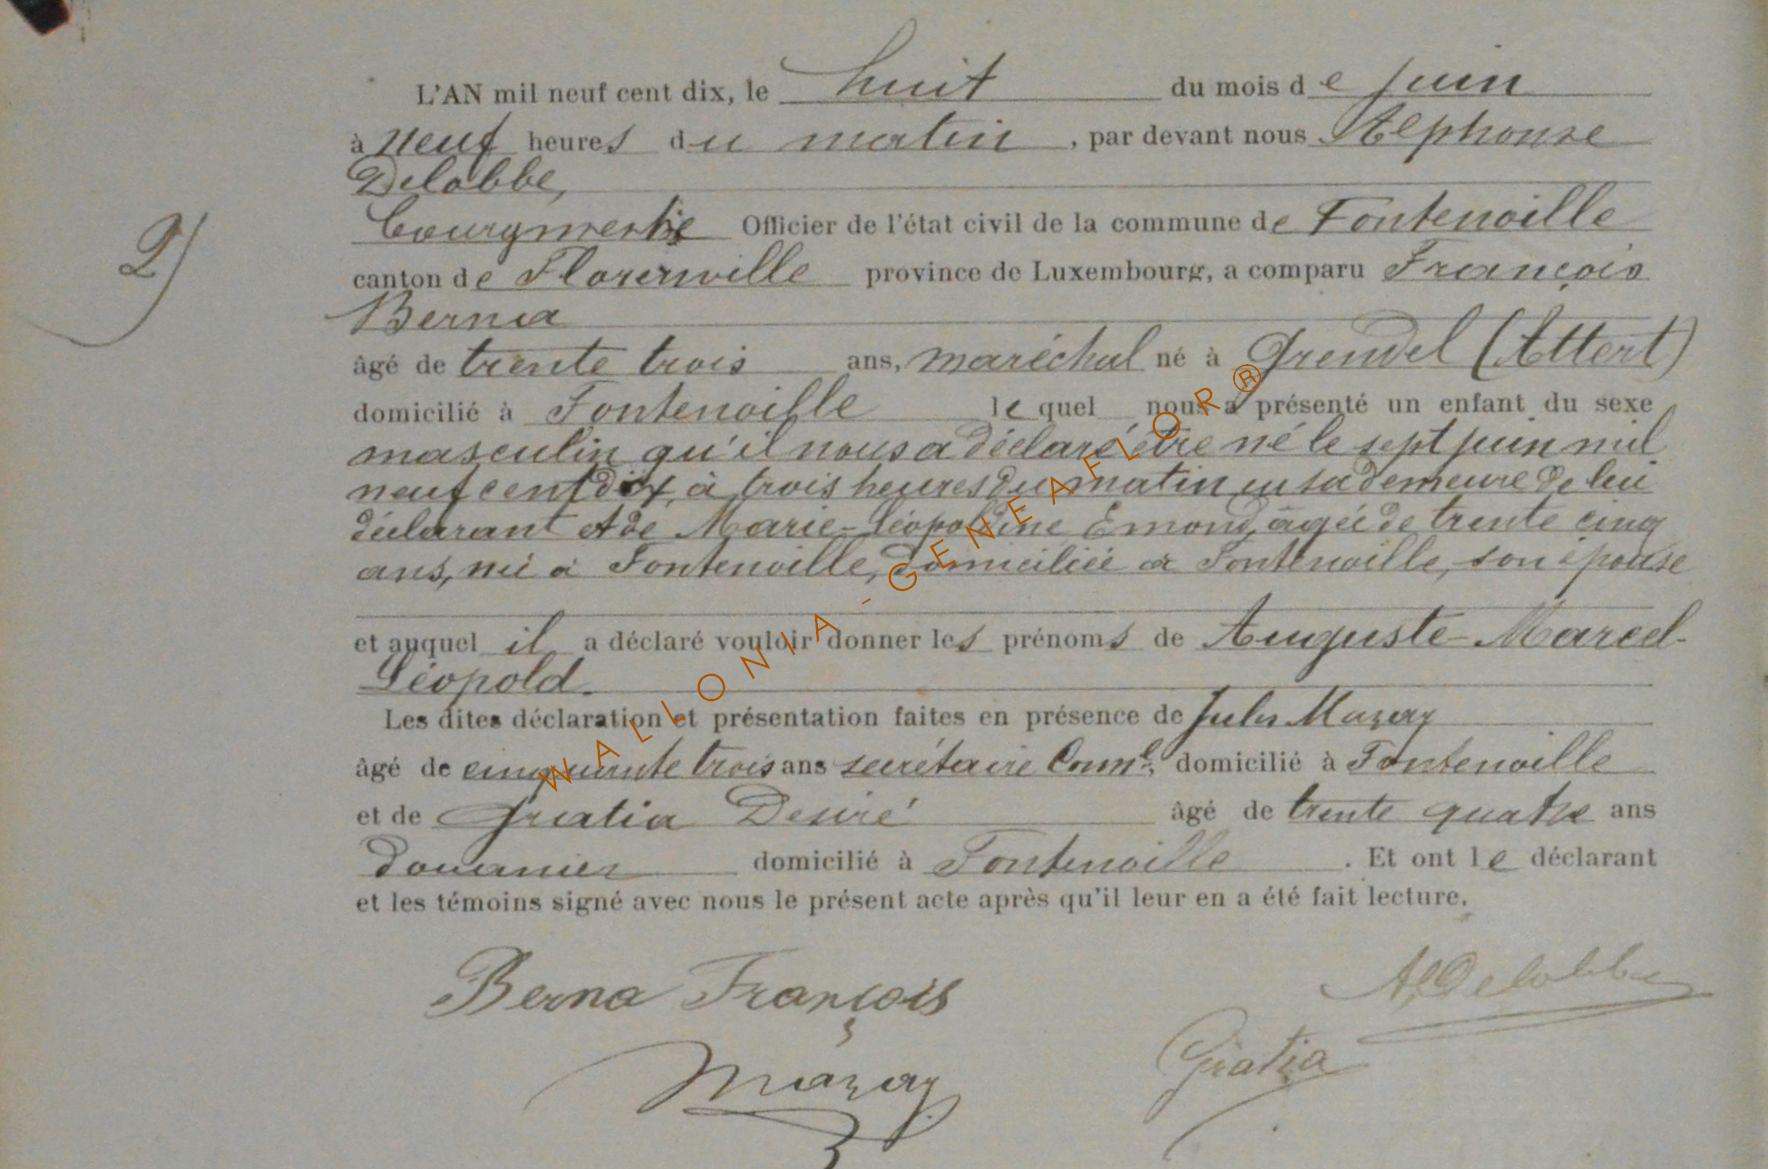 L'AN mil neuf cent dix, le huit du mois de juin
à neuf heures du matin, par devant nous Alphonse
Delobbe,
bourgmestre Officier de l'état civil de la commune de Fontenoille
canton de Florenville province de Luxembourg, a comparu François
Berna
2)
âgé de trente trois ans, maréchal né à Grendel (Attert)
domicilié à Fontenoille lequel nous a présenté un enfant du sexe
masculin qu'il nous a déclaré être né le sept juin mil
neuf cent dix, à trois heures du matin en sa demeure de lui
déclarant et de Marie-Léopoldine Emond, âgée de trente cinq
ans, née à Fontenoille, domiciliée à Fontenoille, son épouse
et auquel il a déclaré vouloir donner les prénoms de Auguste-Marcel-
Léopold.
Les dites déclaration et présentation faites en présence de Jules Mazay
âgé de cinquante trois ans secrétaire Coml, domicilié à Fontenoille
et de Gratia Desiré âgé de trente quatre ans
douanier domicilié à Fontenoille. Et ont le déclarant
et les témoins signé avec nous le présent acte après qu'il leur en a été fait lecture.
Berna François
Al Delobbe
Mazay
Gratia
WALLONIA-GENEAFLOR®